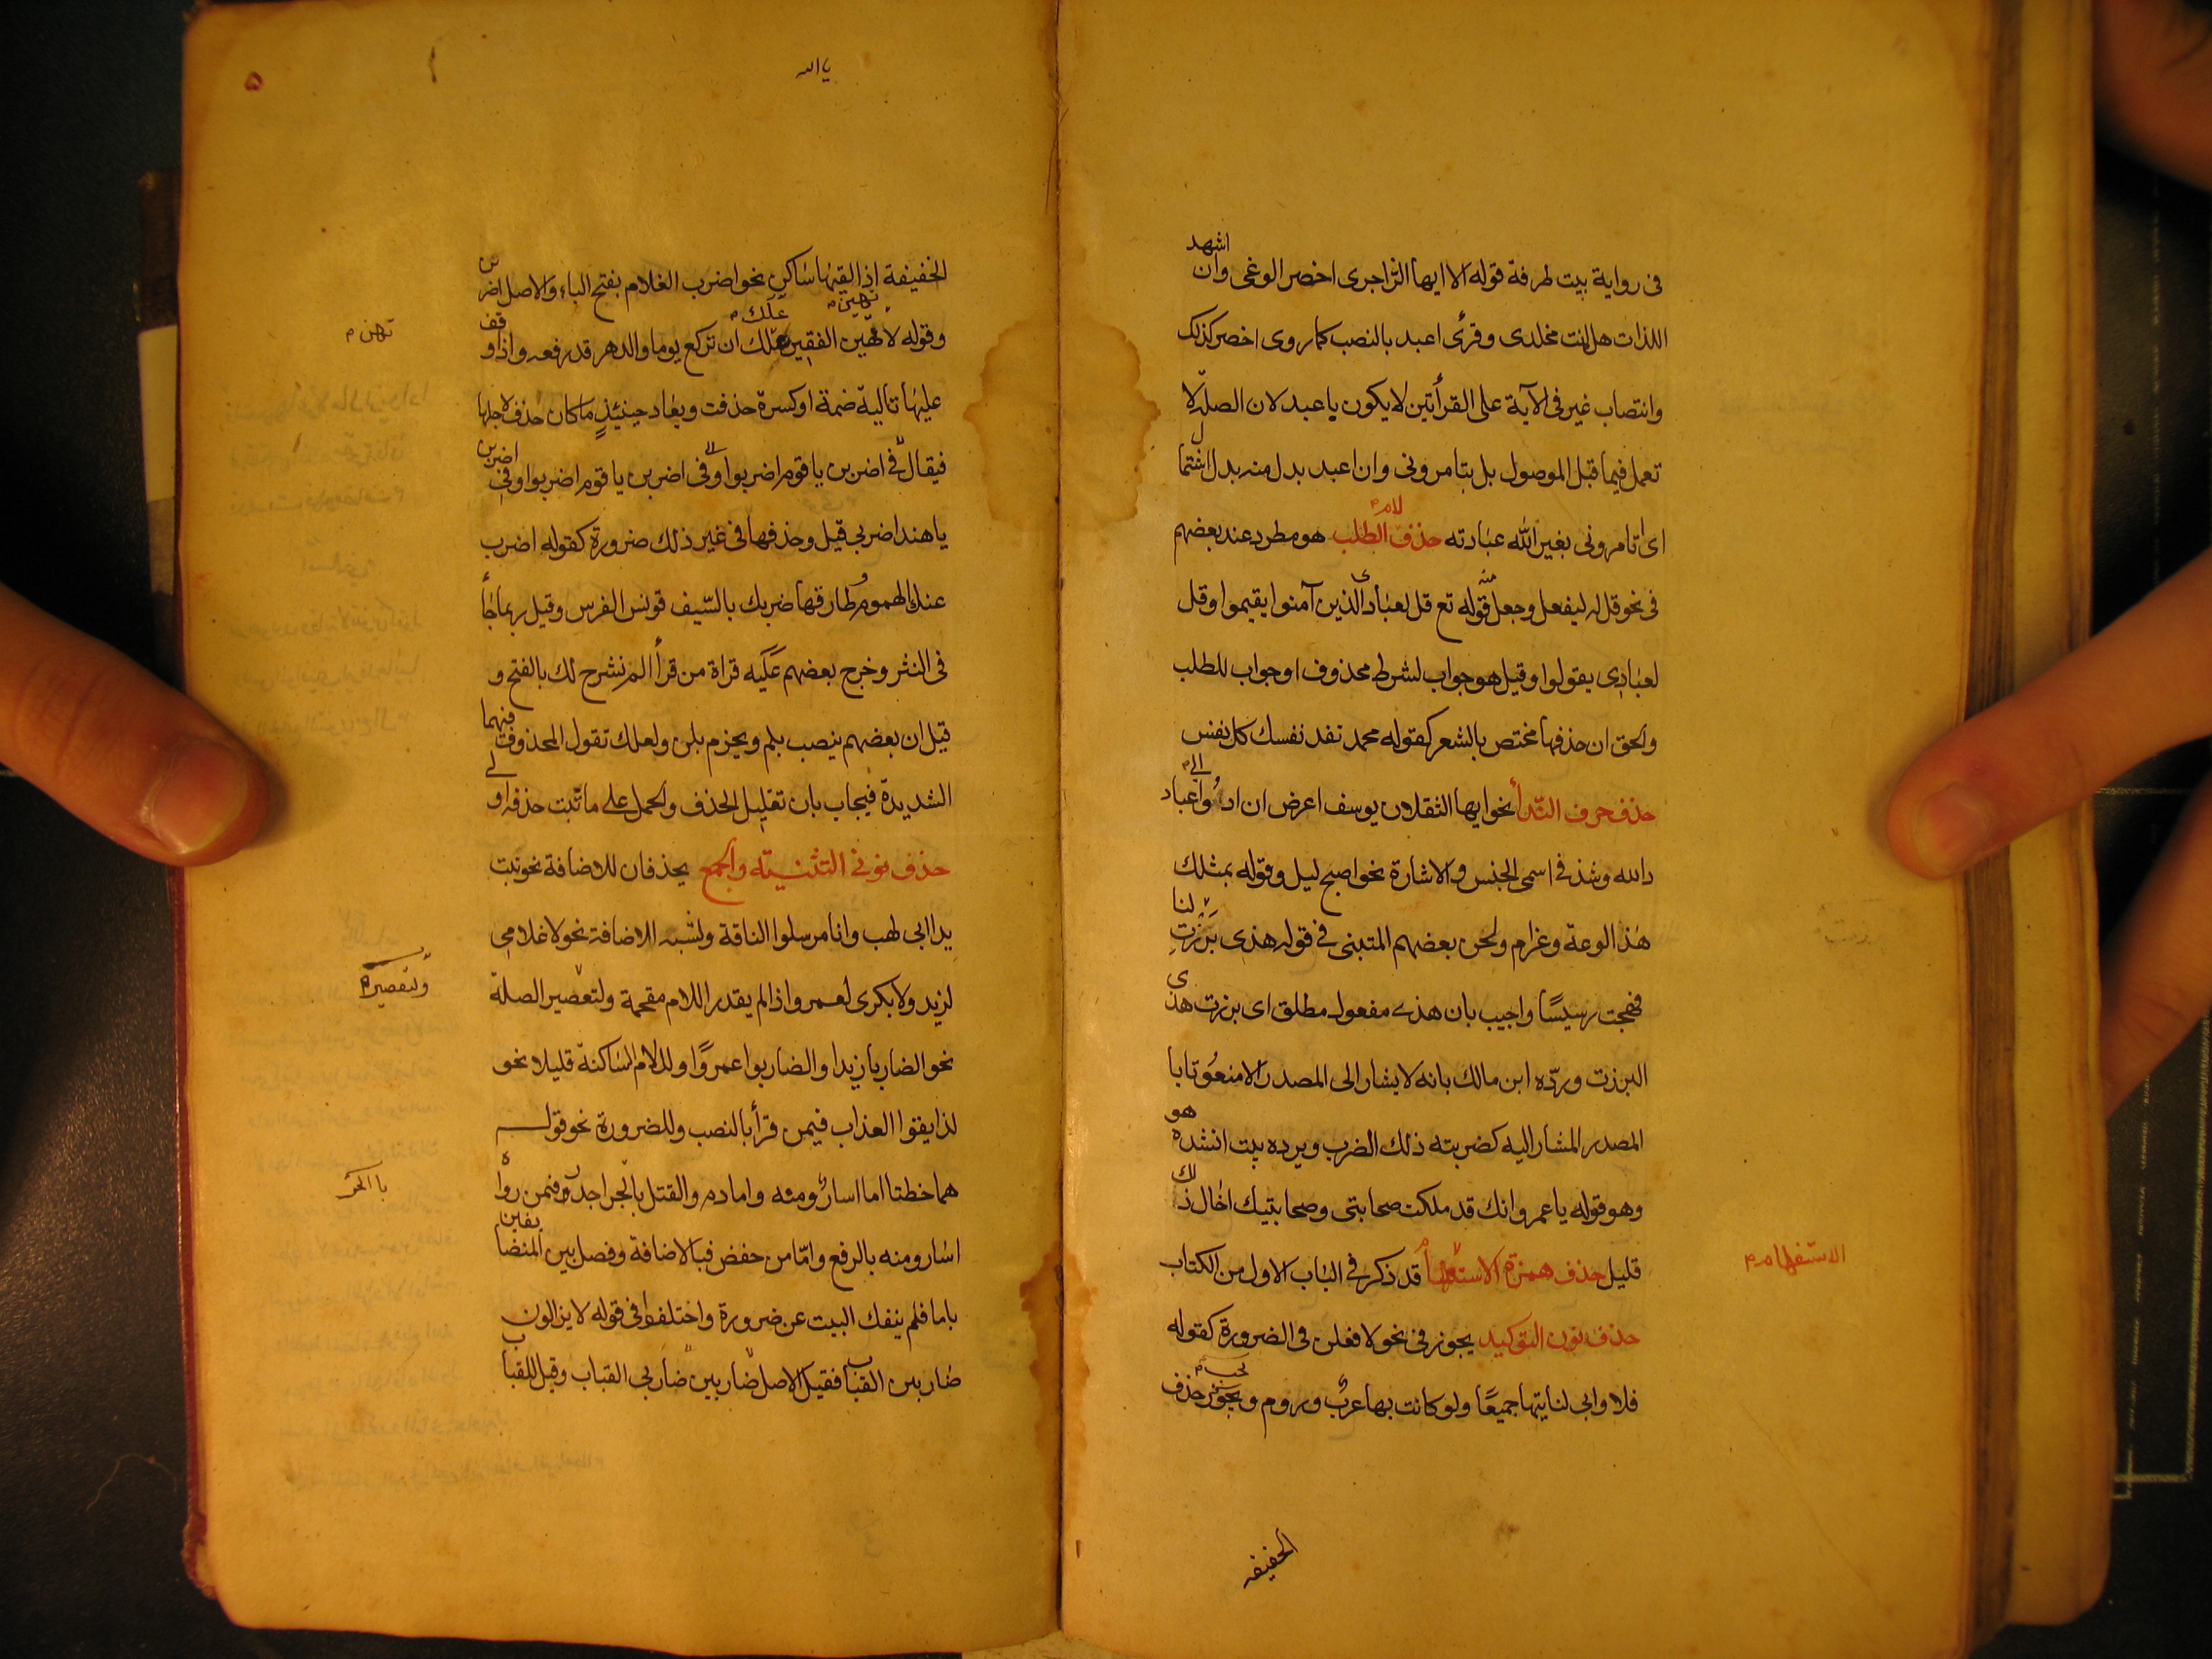 فى رواية بيت لمرفة قوله الا ايها الزاجرى احضر الوغى وان اشهد
اللذات هل انت مخلدى وقرئ اعبد بالنصب كما روى احضر كذلك
وانتصاب غير فى الآية على القرأتين لا يكون باعبد لان الصلة لا
تعمل فيما قبل الموصول بل بتامرونى وان اعبد بدل منه بدل اشتمال
اى تامرونى بغير الله عبادته حذف لام الطلب هو مطرد عند بعضهم
فى نحو قل له ليفعل وجعل منه قوله تع قل لعبادى الذين آمنوا يقيموا وقل
لعبادى يقولوا وقيل هو جواب لشرط محذوف او جواب للطلب
والحق ان حذفها مختص بالشعر كقوله محمد تفد نفسك كل نفس
حذف حرف الندأ نحو ايها الثقلان يوسف اعرض ان ادوا الى عباد
الله وشذ فى اسمى الجنس والاشارة نحو اصبح ليل وقوله بمثلك
هذا لوعة وغرام ولحن بعضهم المتنبى فى قوله هذى برزت لنا
فهجت رسيسًا واجيب بان هذى مفعول مطلق اى برزت هذى
البرزت وردّه ابن مالك بانه لا يشار الى المصدر الا منعوتا با
المصدر المشار اليه كضربته ذلك الضرب ويرده بيت انشده هو
وهو قوله يا عمرو انك قد مللت صحابتى وصحابتيك اخال ذلك
قليل حذف همزة الاستفها قد ذكر فى الباب الاول من الكتاب
الاستفهام م
حذف نون التوكيد يجوز فى نحو لافعلن فى الضرورة كقوله
فلا وابى لناتيها جميعًا ولو كانت بها عرب وروم ويجب حذف
الخفيفه
۵
يا الله
الخفيفة اذا لقيها ساكن نحو اضرب الغلام بفتح الباء والاصل اضربن
وقوله لا تهين الفقير علك ان تركع يوما والدهر قد رفعه واذا وقف
تهن م
عليها تالية ضمة او كسرة حذفت ويعاد حينئذٍ ما كان حذف لاجلها
فيقال فى اضربن يا قوم اضربوا وفى اضربن يا قوم اضربوا وفى اضربن
يا هند اضربى قيل وحذفها فى غير ذلك ضرورة كقوله اضرب
عنك الهموم طارقها ضربك بالسّيف قونس الفرس وقيل ربما جأ
فى النثر وخرج بعضهم عليه قراة من قرأ الم نشرح لك بالفتح و
قيل ان بعضهم ينصب بلم ويجزم بلن ولعلك تقول المحذوف فيهما
الشديدة فيجاب بان تقليل الحذف والحمل على ما ثبت حذفه اولى
حذف نونى التثنيته والجمع يحذفان للاضافة نحو تبت
يدا ابى لهب وانا مرسلوا الناقة ولشبه الاضافة نحو لا غلامى
لزيد ولا بكرى لعمرو اذا لم يقدر اللام مقحمة ولتقصير الصلة
ولتقصيره
نحو الضاربا زيدا والضاربوا عمروًا وللام الساكنة قليلا نحو
لذايقوا العذاب فيمن قرأ بالنصب وللضرورة نحو قوله
هما خطتا اما اسار ومنه واما دم والقتل بالحر اجدر فيمن رواه
با الحر
اسار ومنه بالرفع وامّا من حفض فبالاضافة وفصل بين المتضايفين
باما فلم ينفك البيت عن ضرورة واختلفوا فى قوله لا يزالون
ضاربين القباب فقيل الاصل ضاربين ضاربى القباب وقيل للقباب